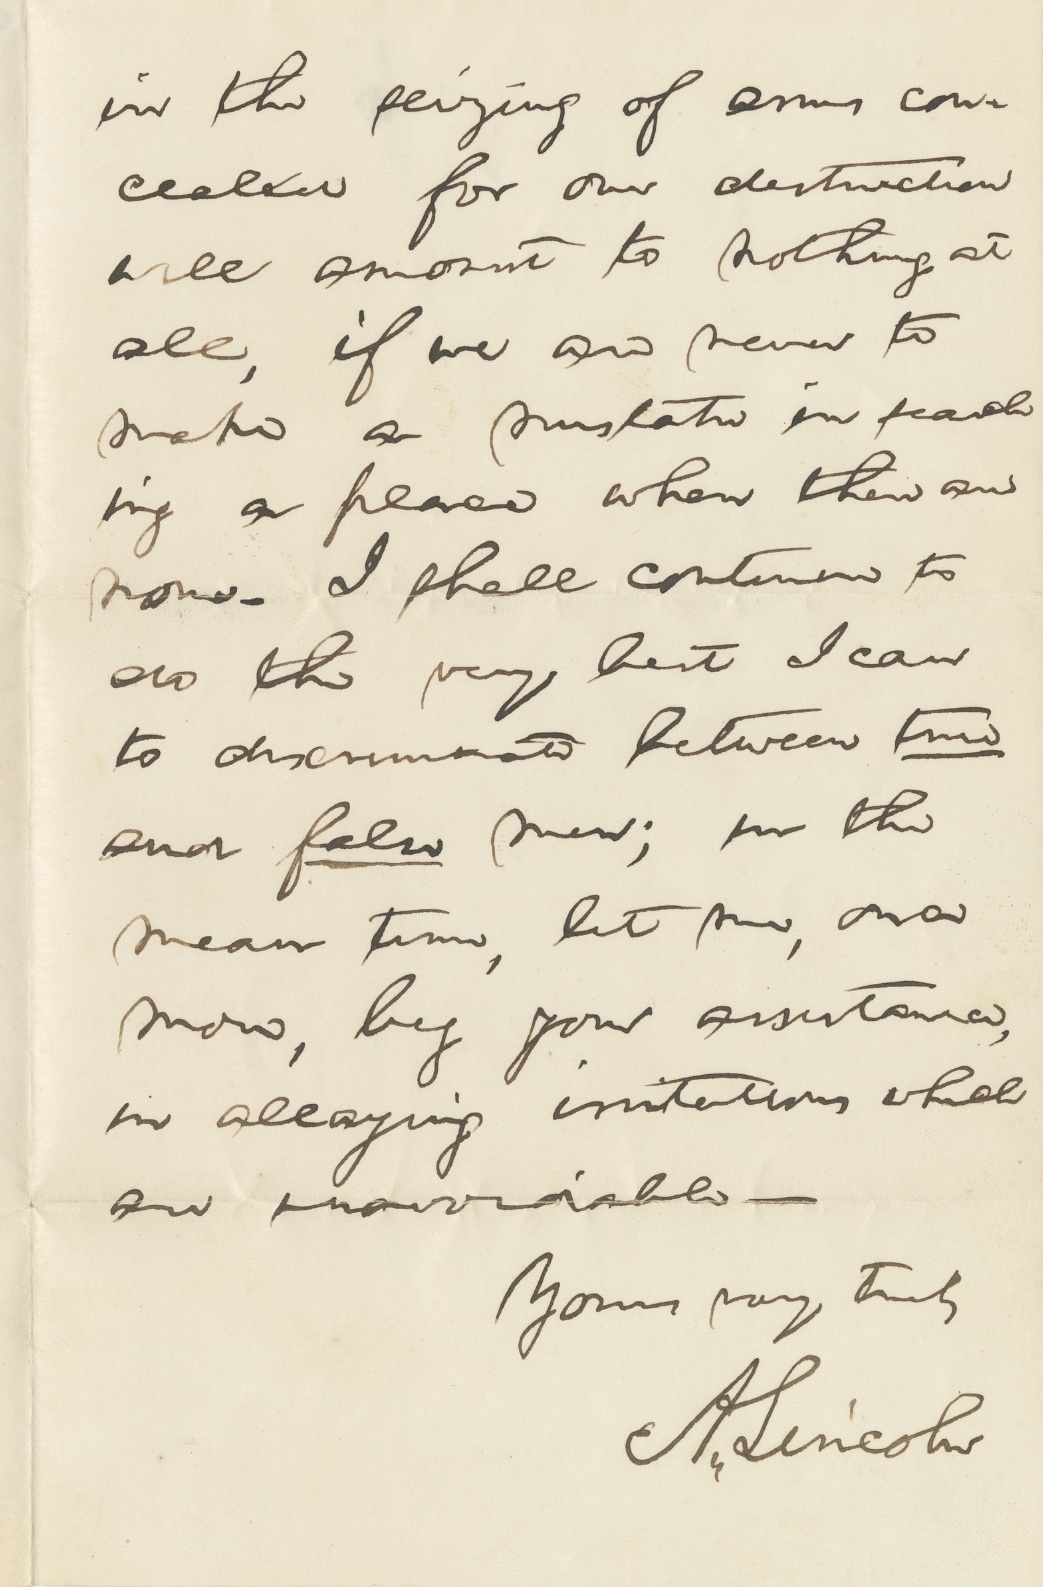 in the seizing of arms con-
cealed for our destruction
will amount to nothing at
all, if we are never to
make a mistake in search
ing a place where there are
none. I shall continue to
do the very best I can
to discriminate between true
and false men; in the
mean time, let me, once
more, beg your assistance,
in allaying irritations which
are unavoidable—
Yours very truly
A. Lincoln